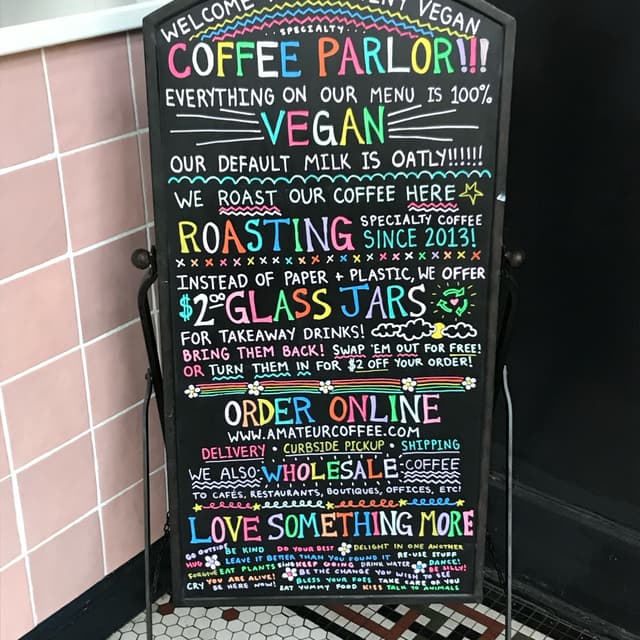 WELCOME VEGAN
..SPECIALTY...
COFFEE PARLOR!!!
EVERYTHING ON OUR MENU IS 100%
VEGAN
OUR DEFAULT MILK IS OATLY!!!!!!
WE ROAST OUR COFFEE HERE
ROASTING SPECIALTY COFFEE
SINCE 2013!
INSTEAD OF PAPER + PLASTIC, WE OFFER
$2.00 GLASS JARS
FOR TAKEAWAY DRINKS!
BRING THEM BACK! SWAP 'EM OUT FOR FREE!
OR TURN THEM IN FOR $2 OFF YOUR ORDER!
ORDER ONLINE
WWW.AMATEURCOFFEE.COM
DELIVERY • CURBSIDE PICKUP • SHIPPING
WE ALSO WHOLESALE COFFEE
TO CAFÉS, RESTAURANTS, BOUTIQUES, OFFICES, ETC!
LOVE SOMETHING MORE
GO OUTSIDE BE KIND DO YOUR BEST DELIGHT IN ONE ANOTHER
HUG LEAVE IT BETTER THAN YOU FOUND IT RE-USE STUFF
FORGIVE EAT PLANTS KEEP GOING DRINK WATER DANCE!
CRY YOU ARE ALIVE! BE THE CHANGE YOU WISH TO SEE BE SILLY!
BE HERE NOW! BLESS YOUR FOES TAKE CARE OF YOU
EAT YUMMY FOOD KISS TALK TO ANIMALS